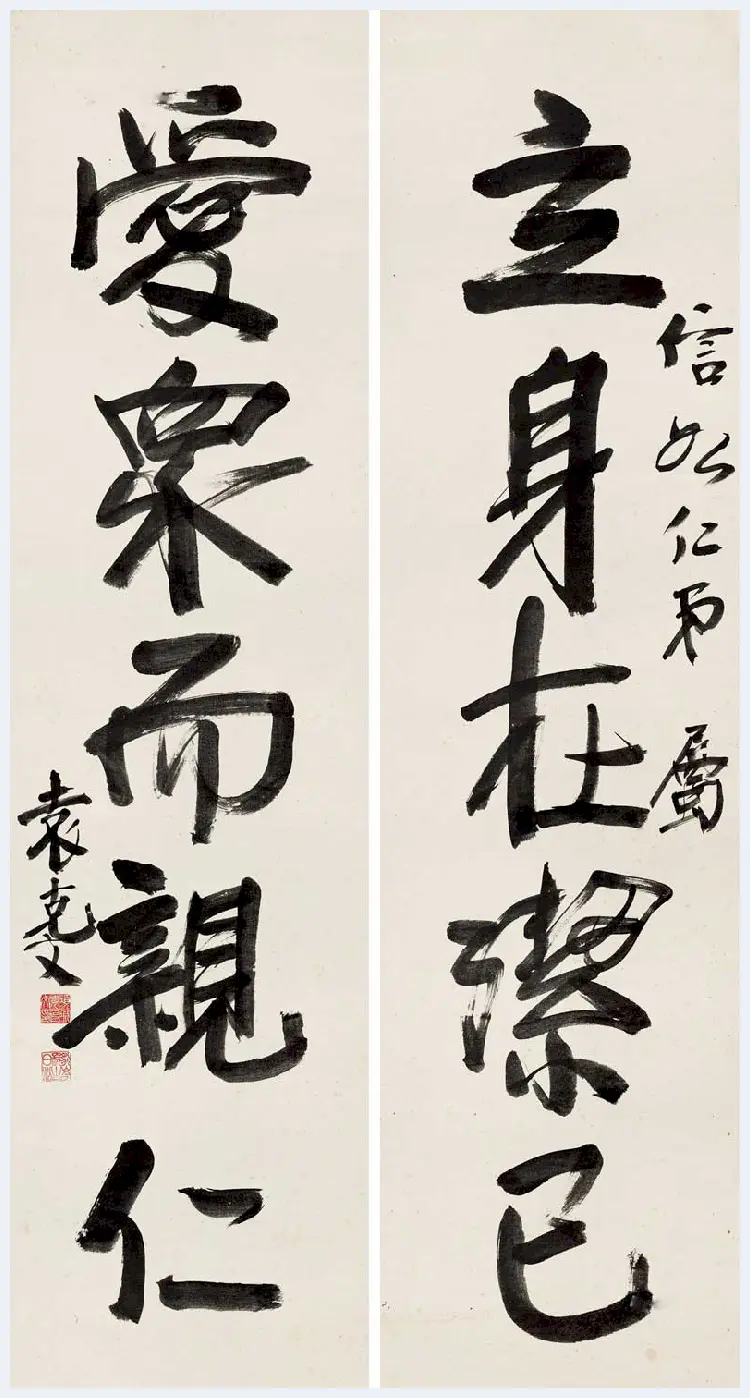 信如仁弟 屬
立身在潔己
愛眾而親仁
袁克文